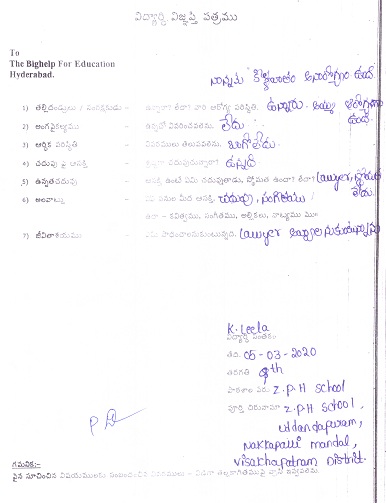 విద్యార్థి విజ్ఞప్తి పత్రము
To
The Bighelp For Education
Hyderabad.
నాన్నకు అనారోగ్యం ఉంది.
1) తల్లిదండ్రులు / సంరక్షకుడు - ఉన్నారా? లేదా? వారి ఆరోగ్య పరిస్థితి. ఉన్నారు. అమ్మ ఆరోగ్యంగా ఉంది.
2) అంగవైకల్యము - ఉన్నచో వివరించవలెను. లేదు
3) ఆర్థిక పరిస్థితి - వివరములు తెలుపవలెను. బాగోలేదు.
4) చదువు పై ఆసక్తి - ఉన్నది
5) ఉన్నతచదువు - ఆసక్తి ఉంటే ఏమి చదువుతాడు, స్తోమత ఉందా? లేదా? (Lawyer, స్తోమత లేదు.
6) అలవాట్లు - ఏ పనుల మీద ఆసక్తి. చదువు, సంగీతము
ఉదా - కవిత్వము, సంగీతము, అల్లికలు, నాట్యము
7) జీవితాశయము - ఏమి సాధించాలనుకుంటున్నది. Lawyer అవ్వాలనుకుంటున్నాను
K. Leela
విద్యార్థి సంతకం
తేది. 05-03-2020
తరగతి 9th
పాఠశాల పేరు Z.P.H School
పూర్తి చిరునామా Z.P.H School,
Uddandapuram,
Nakkapalli Mandal,
Visakhapatnam District.
గమనిక:-
పైన సూచించిన విషయములకు సంబంధించిన వివరములు